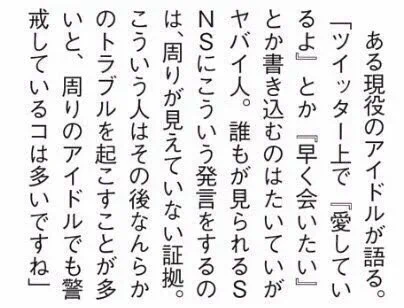 ある現役のアイドルが語る。
「ツイッター上で『愛してい
るよ』とか『早く会いたい』
とか書き込むのはたいていが
ヤバイ人。誰もが見られるS
NSにこういう発言をするの
は、周りが見えていない証拠。
こういう人はその後なんらか
のトラブルを起こすことが多
いと、周りのアイドルでも警
戒しているコは多いですね」